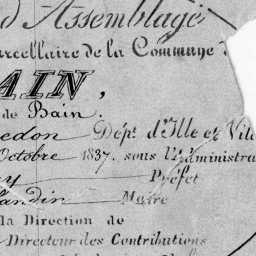 d'Assemblage
arcellaire de la Commune d
AIN,
de Bain.
edon Dépt. d'Ille et Vil
Octobre 1837. sous l'Administra
y Préfet
landin Maire
la Direction de
Directeur des Contributions